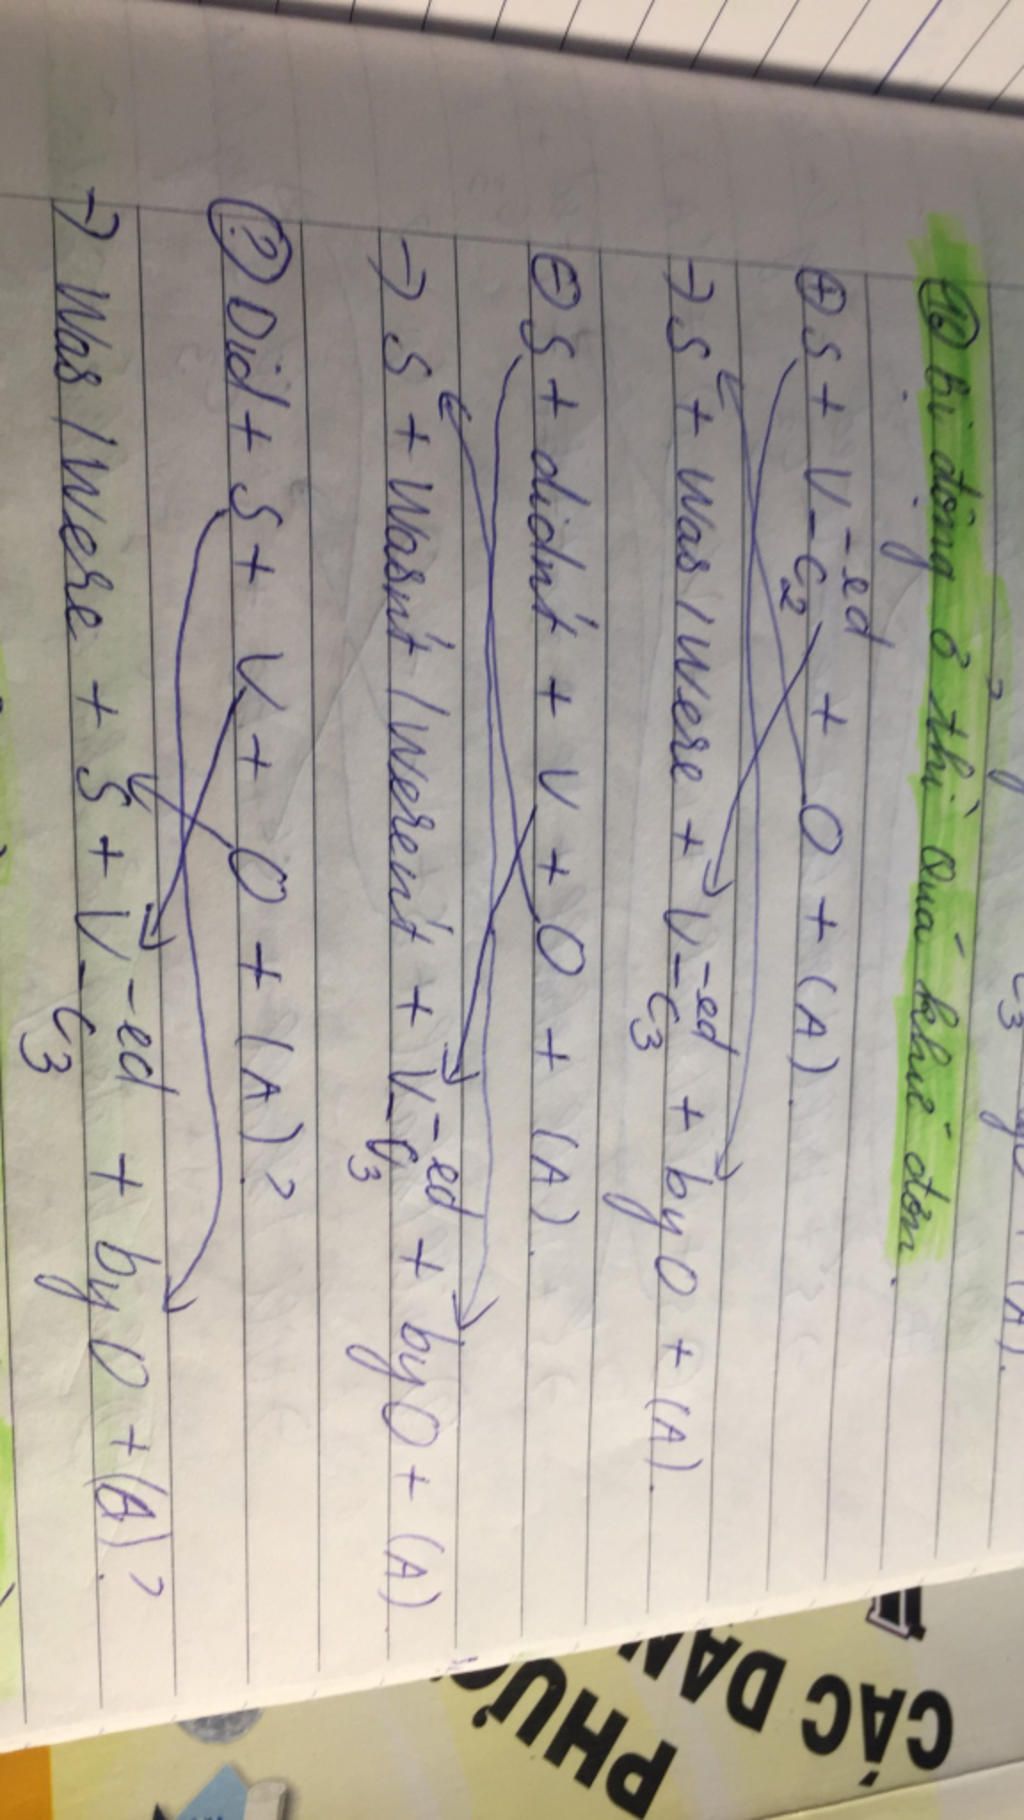 bị động ở thì quá khứ đơn.
(+) S + V-ed/-C2 + O + (A).
→ S + was / were + V-ed/-C3 + by O + (A).
(-) S + didn't + V + O + (A).
→ S + wasn't / weren't + V-ed/-C3 + by O + (A)
(?) Did + S + V + O + (A)?
→ Was / Were + S + V-ed/-C3 + by O + (A)?
CÁC DẠN
PHƯƠ